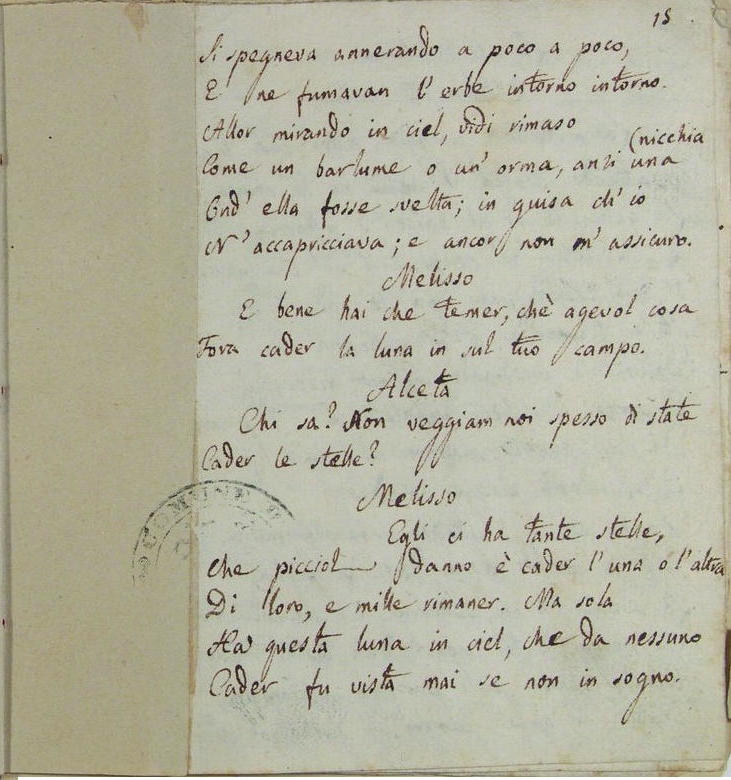 15.
Si spegneva annerando a poco a poco,
E ne fumavan l'erbe intorno intorno.
Allor mirando in ciel, vidi rimaso
(nicchia
Come un barlume o un' orma, anzi una
Ond' ella fosse svelta; in guisa ch' io
N' accapricciava; e ancor non m' assicuro.
Melisso
E bene hai che temer, chè agevol cosa
Fora cader la luna in sul tuo campo.
Alceta
Chi sa? Non veggiam noi spesso di state
Cader le stelle?
Melisso
Egli ci ha tante stelle,
Che picciol danno è cader l'una o l'altra
Di loro, e mille rimaner. Ma sola
Ha questa luna in ciel, che da nessuno
Cader fu vista mai se non in sogno.
COMUNE